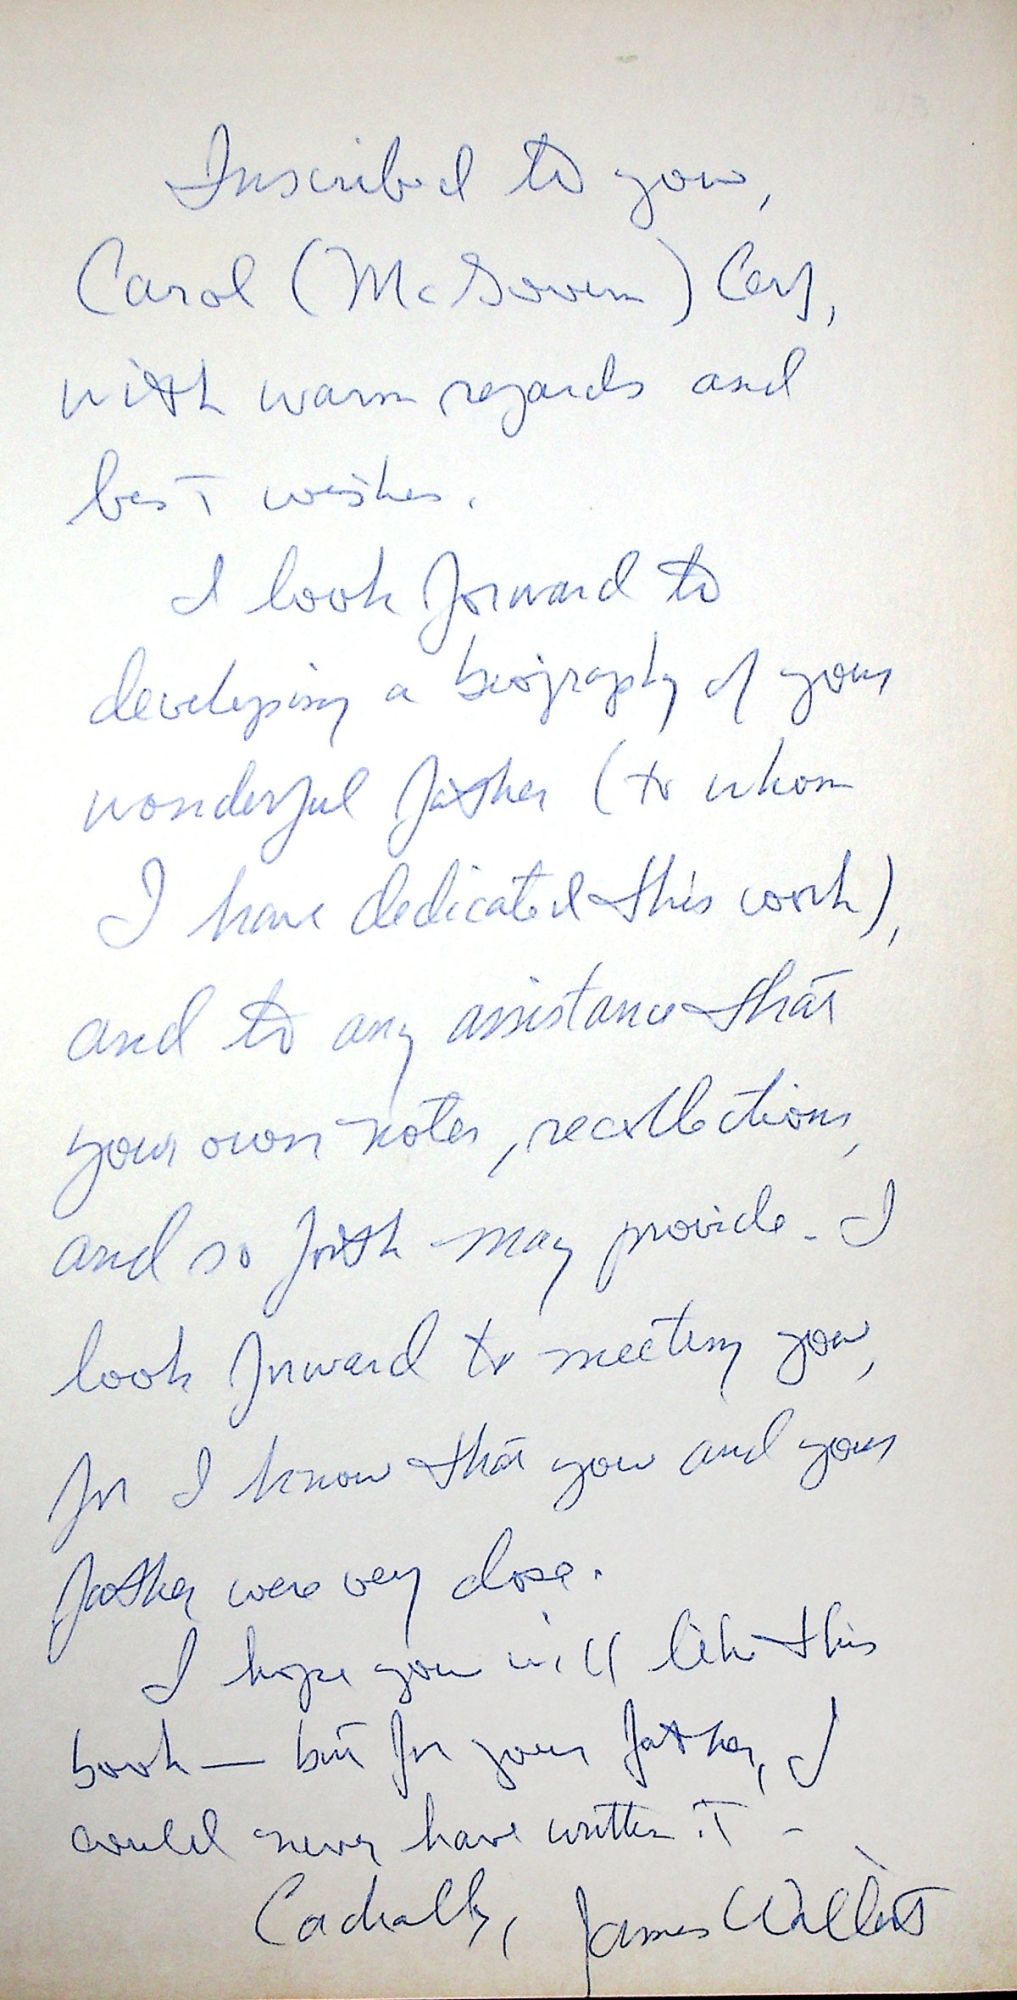 Inscribed to you,
Carol (McGovern) Cerf,
with warm regards and
best wishes.
I look forward to
developing a biography of your
wonderful father (to whom
I have dedicated this work),
and to any assistance that
your own notes, recollections,
and so forth may provide. I
look forward to meeting you,
for I know that you and your
father were very close.
I hope you will like this
book — but for your father, I
would never have written it -
Cordially, James